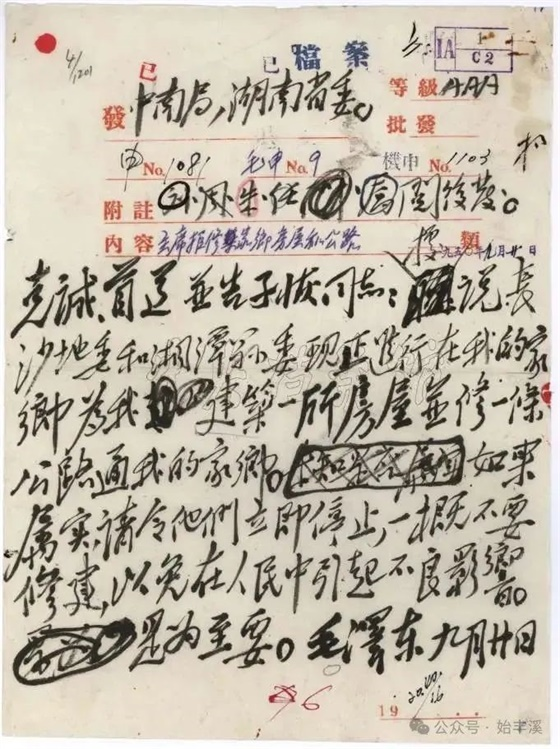 1
IA
C2
4/1201
已 已 檔案
發 中南局,湖南省委。
等級 AAA
批發
申 No. 1081 毛申 No. 9 機申 No. 1103
附註 周後發。
內容 主席拒修 鄉房屋和公路 類
一九五〇年九月廿日
克誠、首道並告子恢同志:據說長
沙地委和湘潭縣委現正進行在我的家
鄉為我建築一所房屋並修一條
公路通我的家鄉。如果
屬實,請令他們立即停止,一概不要
修建,以免在人民中引起不良影響。
是為至要。毛澤东 九月廿日
6
19
公众号 · 始丰溪